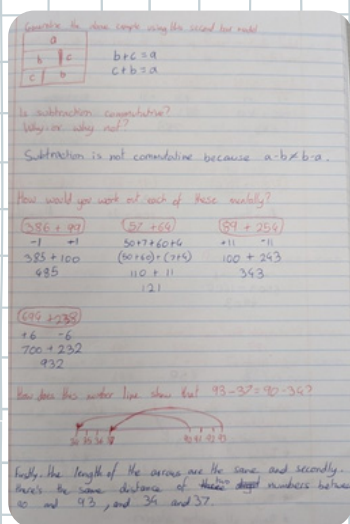 Generalise the above example using this second bar model
a
b c
c b
b+c=a
c+b=a
Is subtraction commutative?
Why or why not?
Subtraction is not commutative because a-b≠b-a.
How would you work out each of these mentally?
386 + 99
-1 +1
385 + 100
485
57 + 64
50+7+60+4
(50+60)+(7+4)
110 + 11
121
89 + 254
+11 -11
100 + 243
343
694 + 238
+6 -6
700 + 232
932
How does this number line show that 93-37=90-34?
34 35 36 37 90 91 92 93
Firstly, the length of the arrows are the same and secondly,
there's the same distance of two numbers between
90 and 93, and 34 and 37.